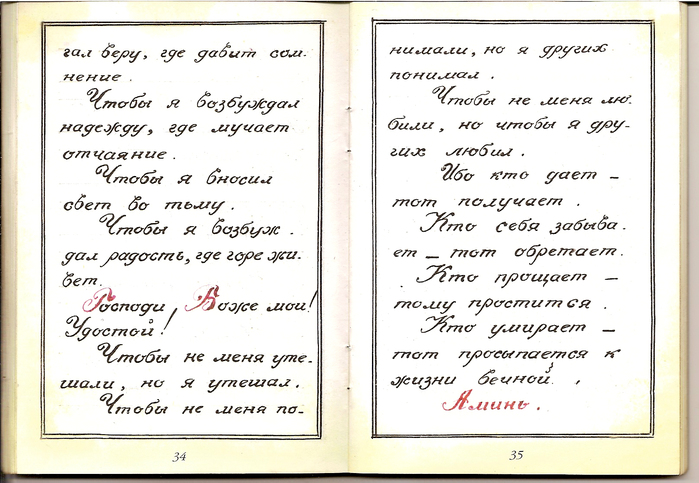 гал веру, где давит сом-
нение.
Чтобы я возбуждал
надежду, где мучает
отчаяние.
Чтобы я вносил
свет во тьму.
Чтобы я возбуж-
дал радость, где горе жи-
вет.
Господи, Боже мой!
Удостой!
Чтобы не меня уте-
шали, но я утешал.
Чтобы не меня по-
34
нимали, но я других
понимал.
Чтобы не меня лю-
били, но чтобы я дру-
гих любил.
Ибо кто дает –
тот получает.
Кто себя забыва-
ет – тот обретает.
Кто прощает –
тому простится.
Кто умирает –
тот просыпается к
жизни вечной.
Аминь.
35